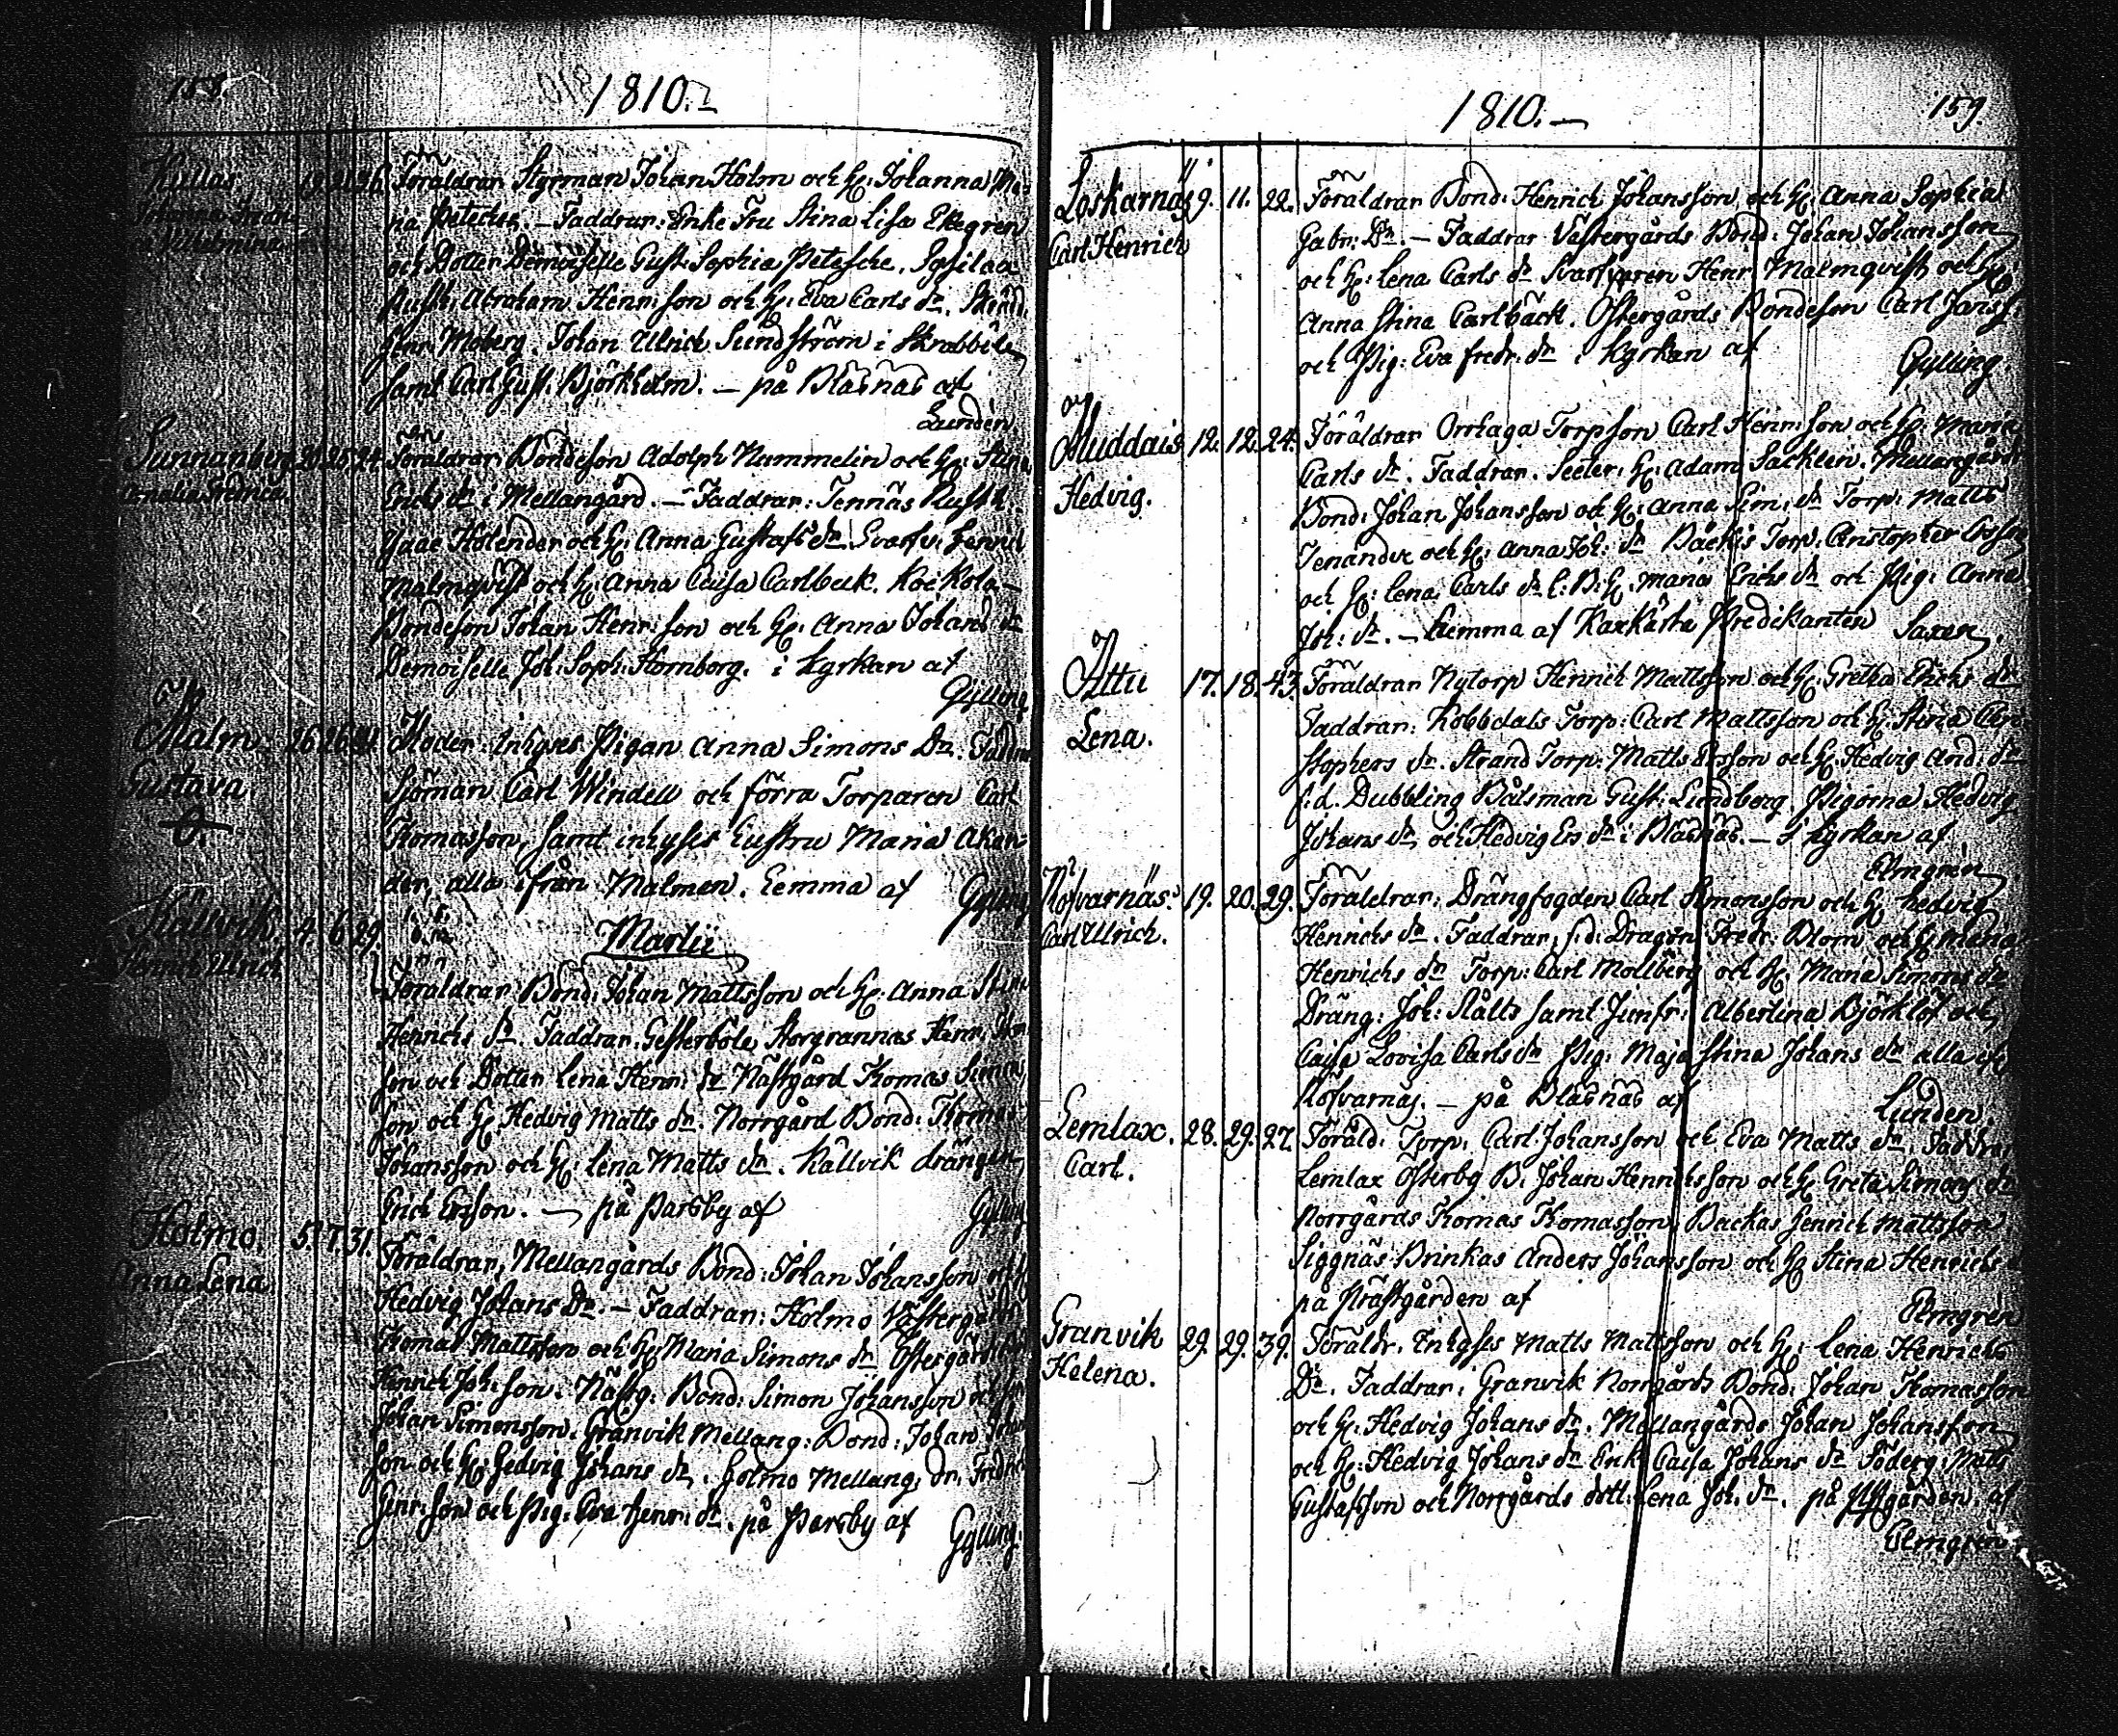 158.
1810.
Föräldrar Styrman Johan Holm och H: Johanna
na Petesche. — Faddrar: Enke Fru Stina Lisa Ekegren
och Dotter Demoiselle Gust: Sophia Petesche.
Rusth: Abraham Henr: son och H: Eva Carls dr.
Henr: Moberg. Johan Ulrich Sundström i Skräbböle
samt Carl Gust: Björkholm. — på Bläsnäs af
Lunden
Sunnanberg
Amalia Fredrica.
Föräldrar: Bondeson Adolph Nummelin och H: Stina
Erichs dr i Mellangård. — Faddrar: Tennäs Rusth:
Isaac Holender och H: Anna Gustafs dr. Svarfv: Henric
Malmqvist och H: Anna Caisa Carlbeck.
Bondeson Johan Henr: son och H: Anna Johans dr
Demoiselle Joh: Soph: Hornborg. i Kyrkan af
Gylling
Malm
Gustava.
26 26
Moder: Inhyses Pigan Anna Simons Dr.
Sjöman Carl Windell och förra Torparen Carl
Thomasson, samt inhyses Hustru Maria Aken
der, alla ifrån Malmen. Hemma af Gylling
Martii
Källvik 4. 6 29.
Henric Ulrich
Föräldrar: Bond: Johan Mattsson och H: Anna Stina
Henrichs dr. Faddrar. Gesterbole Storgrannas Henr:
son och Dotter Lena Henr: dr Näsgård Thomas Simon
son och H: Hedvig Matts dr. Norrgård Bond: Thomas
Johansson och H: Lena Matts dr. Källvik drängen
Erich Erson. — på Parsby af
Gylling
Holmo. 5. 7. 31.
Anna Lena
Föräldrar, Mellangårds Bond: Johan Johansson och H
Hedvig Johans Dr. — Faddrar: Holmo Västergård
Thomas Mattsson och H: Maria Simons dr Östergård
Henrich Joh: son. Näsg: Bond: Simon Johansson och
Johan Simonsson. Granvik Mellang: Bond: Johan
son och H: Hedvig Johans dr. Holmo Mellang: Dr. Fredric
Henr: son och Pig: Eva Henr: dr. på Parsby af
Gylling.
1810. —
159.
Loskarnäs 9. 11. 22.
Carl Henrich
Föräldrar Bond: Henrich Johansson och H: Anna Sophia
Gabr: Dr. — Faddrar Västergårds Bond: Johan Johansson
och H: Lena Carls dr Svarfvaren Henr: Malmqvist och H:
Anna Stina Carlbäck. Östergårds Bondeson Carl Janss:
och Pig: Eva Fredr: dr i Kyrkan af
Gylling.
Muddais 12. 12. 24.
Hedvig.
Föräldrar Orrhaga Torpson Carl Henr: son och H: Maria
Carls dr. Faddrar. H: Adam Mellangårds
Bond: Johan Johansson och H: Anna Sim: dr Torp: Matts
och H: Anna Joh: dr Bäckis Torp:
och H: Lena Carls dr H: Maria Erichs dr och Pig: Anna
Joh: dr. — hemma af Predikanten Saxen.
Attu 17. 18. 43.
Lena.
Föräldrar Nytorp Henrich Mattsson och H: Gretha Erichs dr
Faddrar: Kobbdals Torp: Carl Mattsson och H: Stina
stophers dr. Strand Torp: Matts Ersson och H: Hedvig And: dr
f: d. Dubbling Båtsman Gust: Lundberg Pigorna Hedvig
Johans dr och Hedvig Ers dr i Bläsnäs. — i Kyrkan af
Elmgren
Kofvarnäs. 19. 20. 29.
Carl Ulrich.
Föräldrar, Drängfogden Carl Simonsson och H: Hedvig
Henrichs dr. Faddrar, f: d: Dragon Fredr: Blom och H: Maria
Henrichs dr Torp: Carl Mollberg och H: Maria Simons dr
Dräng: Joh: Stålts samt Jumfr: Albertina Björklöf och
Caisa Lovisa Carls dr Pig: Maja Stina Johans dr alla ifr:
Kofvarnäs. — på Bläsnäs af
Lunden.
Lemlax. 28. 29. 27.
Carl.
Föräld: Torp: Carl Johansson och Eva Matts dr. Faddrar
Lemlax Österby B: Johan Henrichsson och H: Greta Simons dr
Norrgårds Thomas Thomasson, Backas Henrich Mattsson
Siggnäs Brinkas Anders Johansson och H: Stina Henrichs
på Prästgården af
Elmgren
Granvik 29. 29. 39.
Helena.
Föräldr. Inhyses Matts Mattsson och H: Lena Henrichs
Dr. Faddrar: Granvik Norrgårds Bond: Johan Thomasson
och H: Hedvig Johans dr. Mellangårds Johan Johansson
och H: Hedvig Johans dr Enk: Caisa Johans dr Söderg: Matts
Gustafsson och Norrgårds dott: Lena Joh: dr. på Pstgården af
Elmgren